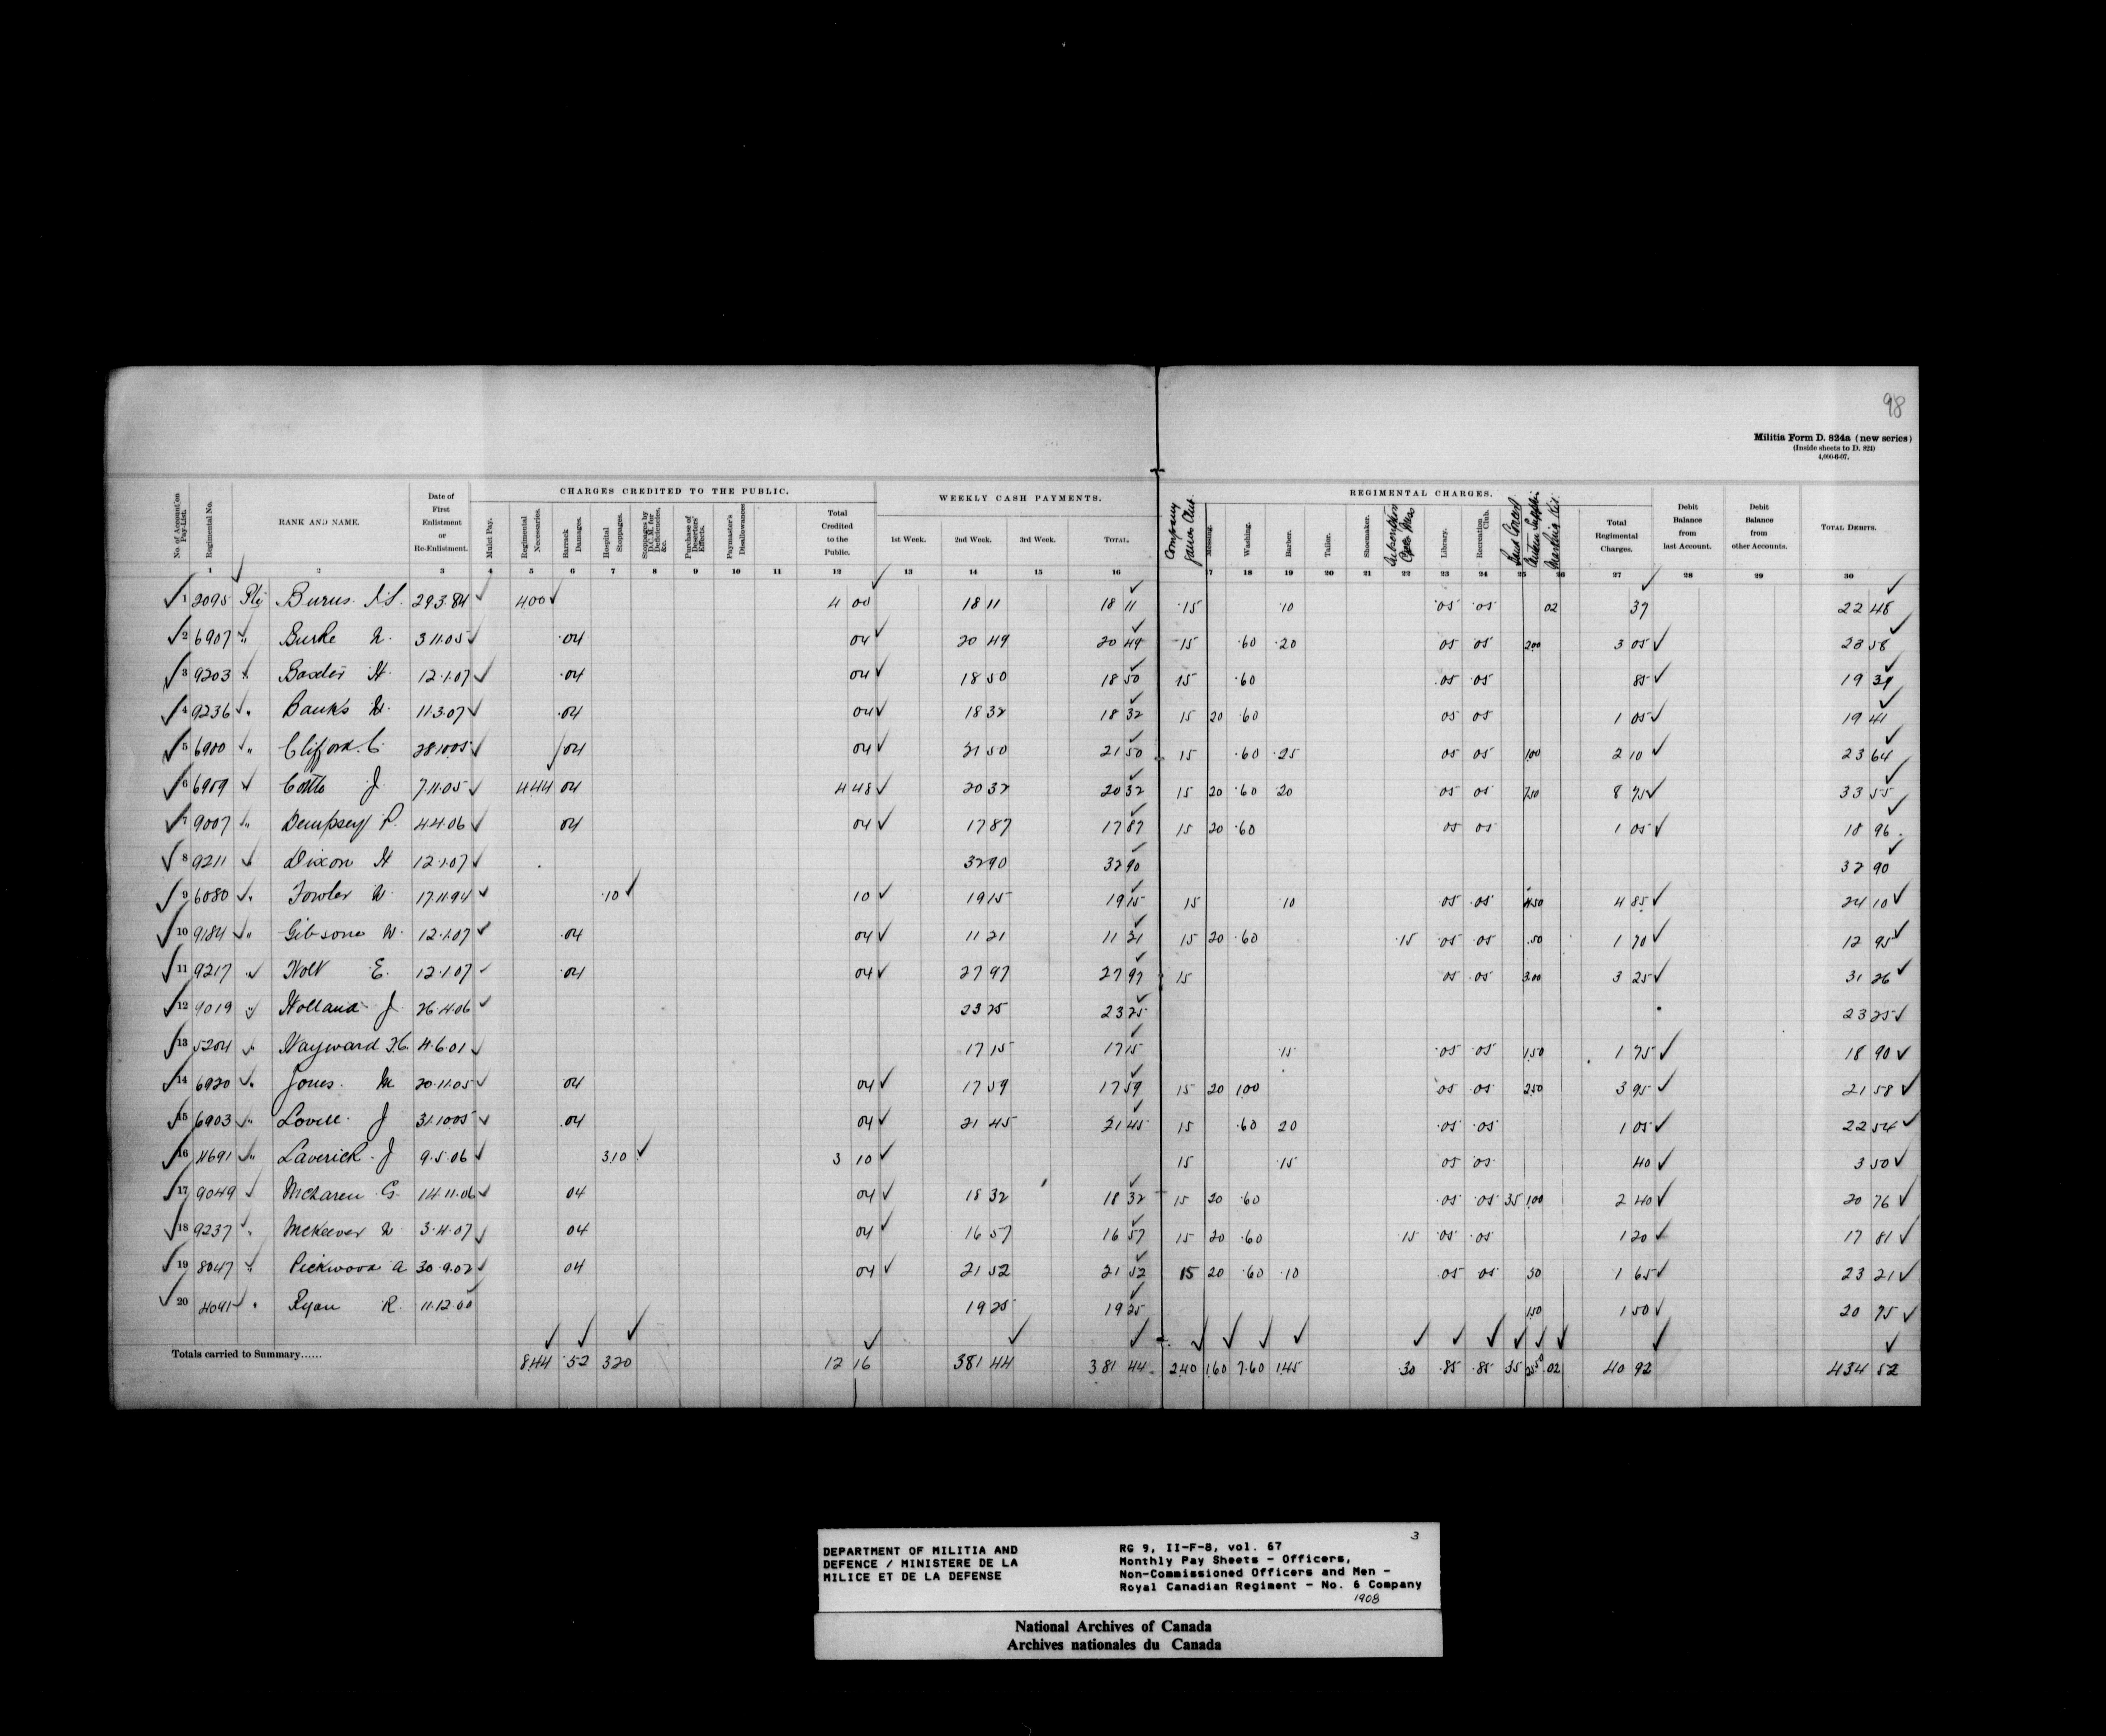 98
Militia Form D. 824a (new series)
(Inside sheets to D. 824)
4,000-6-07.
CHARGES CREDITED TO THE PUBLIC. WEEKLY CASH PAYMENTS. REGIMENTAL CHARGES.
No. of Account on Pay-List. Regimental No. RANK AND NAME. Date of First Enlistment or Re-Enlistment. Mulct Pay. Regimental Necessaries. Barrack Damages. Hospital Stoppages. Stoppages by D.C.M. for Deficiencies, &c. Purchase of Deserters' Effects. Paymaster's Disallowances Total Credited to the Public. 1st Week. 2nd Week. 3rd Week. TOTAL. Company Messing. Washing. Barber. Tailor. Shoemaker. Subscription Library. Recreation Club. Total Regimental Charges. Debit Balance from last Account. Debit Balance from other Accounts. TOTAL DEBITS.
1 2 3 4 5 6 7 8 9 10 11 12 13 14 15 16 17 18 19 20 21 22 23 24 25 26 27 28 29 30
1 2095 Pte Burns 29.3.84 4.00 4 00 18 11 18 11 .15 .10 .05 .05 02 37 22 48
2 6907 " Burke W. 3.11.05 .04 04 20 49 20 49 15 .60 .20 05 05 2.00 3 05 23 58
3 9203 " Baxter H. 12.1.07 .04 04 18 50 18 50 15 .60 .05 .05 85 19 39
4 9236 " Banks W. 11.3.07 .04 04 18 32 18 32 15 20 .60 05 05 1 05 19 41
5 6900 " Clifford C. 28.10.05 04 04 21 50 21 50 15 .60 .25 05 05 1.00 2 10 23 64
6 6909 " J. 7.11.05 4.44 04 4 48 20 32 20 32 15 20 .60 .20 05 05 7.50 8 75 33 55
7 9007 " Dempsey P. 4.4.06 04 04 17 87 17 87 15 20 .60 05 05 1 05 18 96
8 9211 " Dixon H 12.1.07 32 90 32 90 32 90
9 6080 " Fowler W. 17.11.94 .10 10 19 15 19 15 15 .10 .05 .05 4.50 4 85 24 10
10 9184 " Gibsone W. 12.1.07 .04 04 11 21 11 21 15 20 .60 .15 .05 .05 .50 1 70 12 95
11 9217 " Holt E. 12.1.07 .04 04 27 97 27 97 15 05 .05 3.00 3 25 31 26
12 9019 " Holland J. 26.4.06 23 25 23 25 23 25
13 5204 " Hayward 4.6.01 17 15 17 15 .15 .05 .05 1.50 1 75 18 90
14 6920 " Jones. M. 20.11.05 .04 04 17 59 17 59 15 20 1.00 .05 .05 2.50 3 95 21 58
15 6903 " Lovell. J 31.10.05 .04 04 21 45 21 45 15 .60 20 .05 .05 1 05 22 54
16 4691 " Laverick. J 9.5.06 3.10 3 10 15 .15 05 05 40 3 50
17 9049 " McLaren G. 14.11.06 04 04 18 32 18 32 15 20 .60 .05 .05 35 1.00 2 40 20 76
18 9237 " McKeever W 3.4.07 04 04 16 57 16 57 15 20 .60 .15 .05 .05 1 20 17 81
19 8047 " Pickwood A 30.9.02 04 04 21 52 21 52 15 20 .60 .10 .05 05 50 1 65 23 21
20 4091 " Ryan R. 11.12.00 19 25 19 25 1.50 1 50 20 75
Totals carried to Summary...... 8.44 .52 3.20 12 16 381 44 381 44 2.40 1.60 7.60 1.45 .30 .85 .85 35 25.50 .02 40 92 434 52
DEPARTMENT OF MILITIA AND
DEFENCE / MINISTERE DE LA
MILICE ET DE LA DEFENSE
3
RG 9, II-F-8, vol. 67
Monthly Pay Sheets - Officers,
Non-Commissioned Officers and Men -
Royal Canadian Regiment - No. 6 Company
1908
National Archives of Canada
Archives nationales du Canada